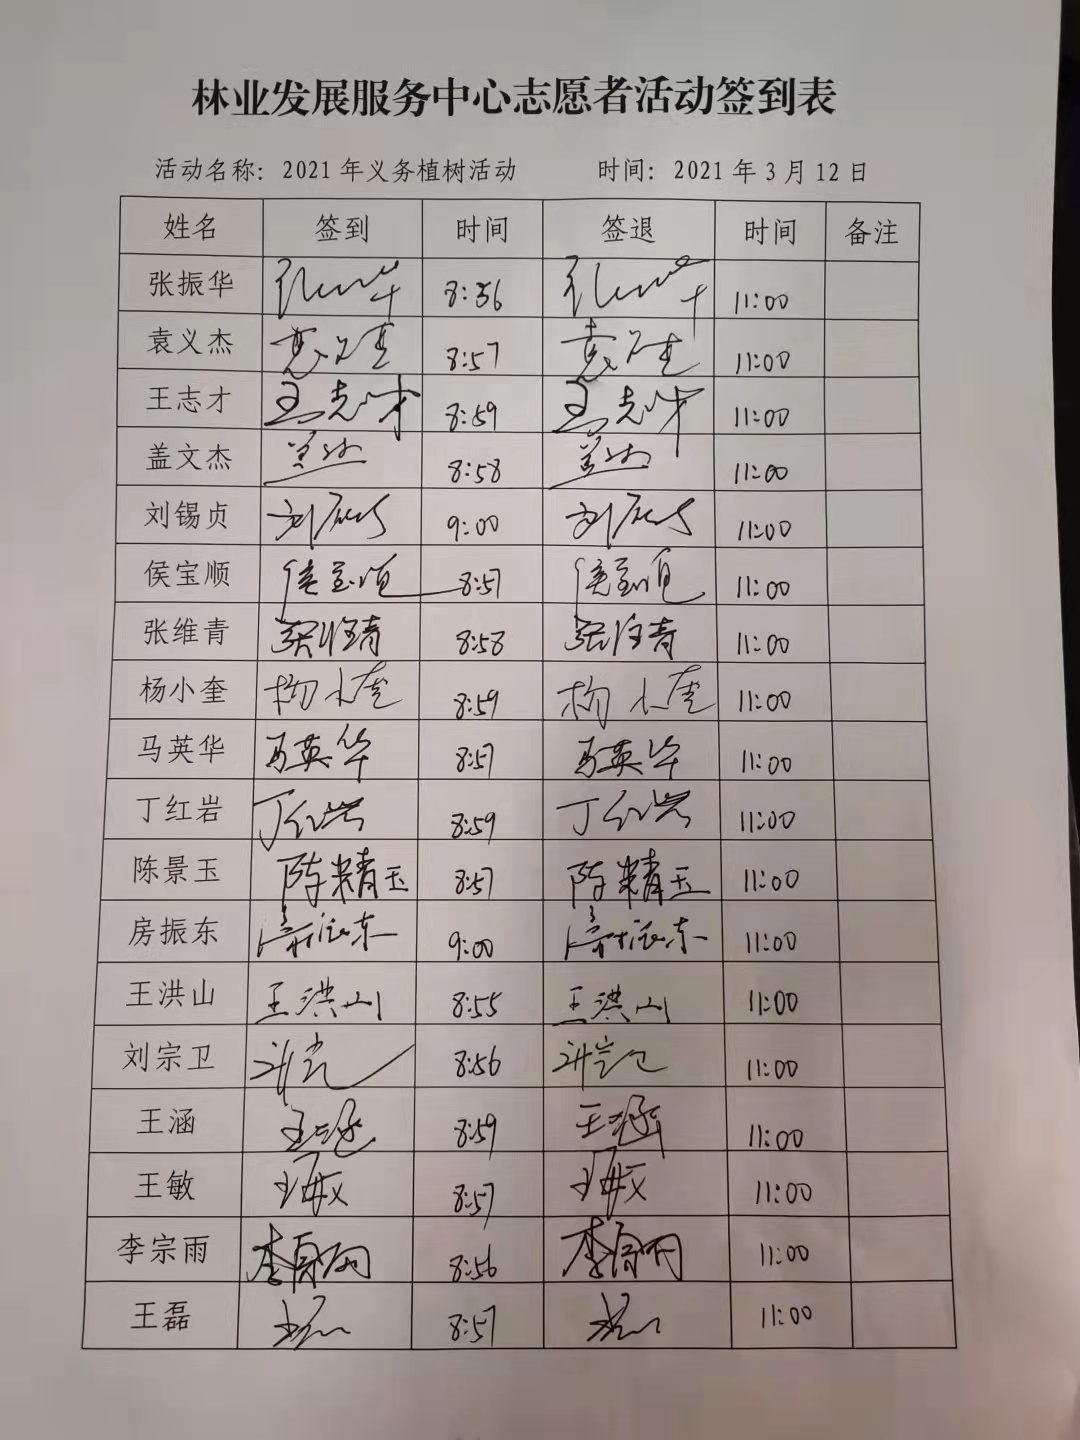 林业发展服务中心志愿者活动签到表
活动名称：2021年义务植树活动 时间：2021年3月12日
姓名 签到 时间 签退 时间 备注
张振华 张振华 8:56 张振华 11:00
袁义杰 袁义杰 8:57 袁义杰 11:00
王志才 王志才 8:59 王志才 11:00
盖文杰 8:58 11:00
刘锡贞 9:00 11:00
侯宝顺 侯宝顺 8:57 侯宝顺 11:00
张维青 张维青 8:58 张维青 11:00
杨小奎 杨小奎 8:59 杨小奎 11:00
马英华 马英华 8:57 马英华 11:00
丁红岩 丁红岩 8:59 丁红岩 11:00
陈景玉 陈精玉 8:57 陈精玉 11:00
房振东 房振东 9:00 房振东 11:00
王洪山 王洪山 8:55 王洪山 11:00
刘宗卫 8:56 11:00
王涵 王涵 8:59 王涵 11:00
王敏 王敏 8:57 王敏 11:00
李宗雨 李宗雨 8:56 李宗雨 11:00
王磊 王磊 8:57 王磊 11:00